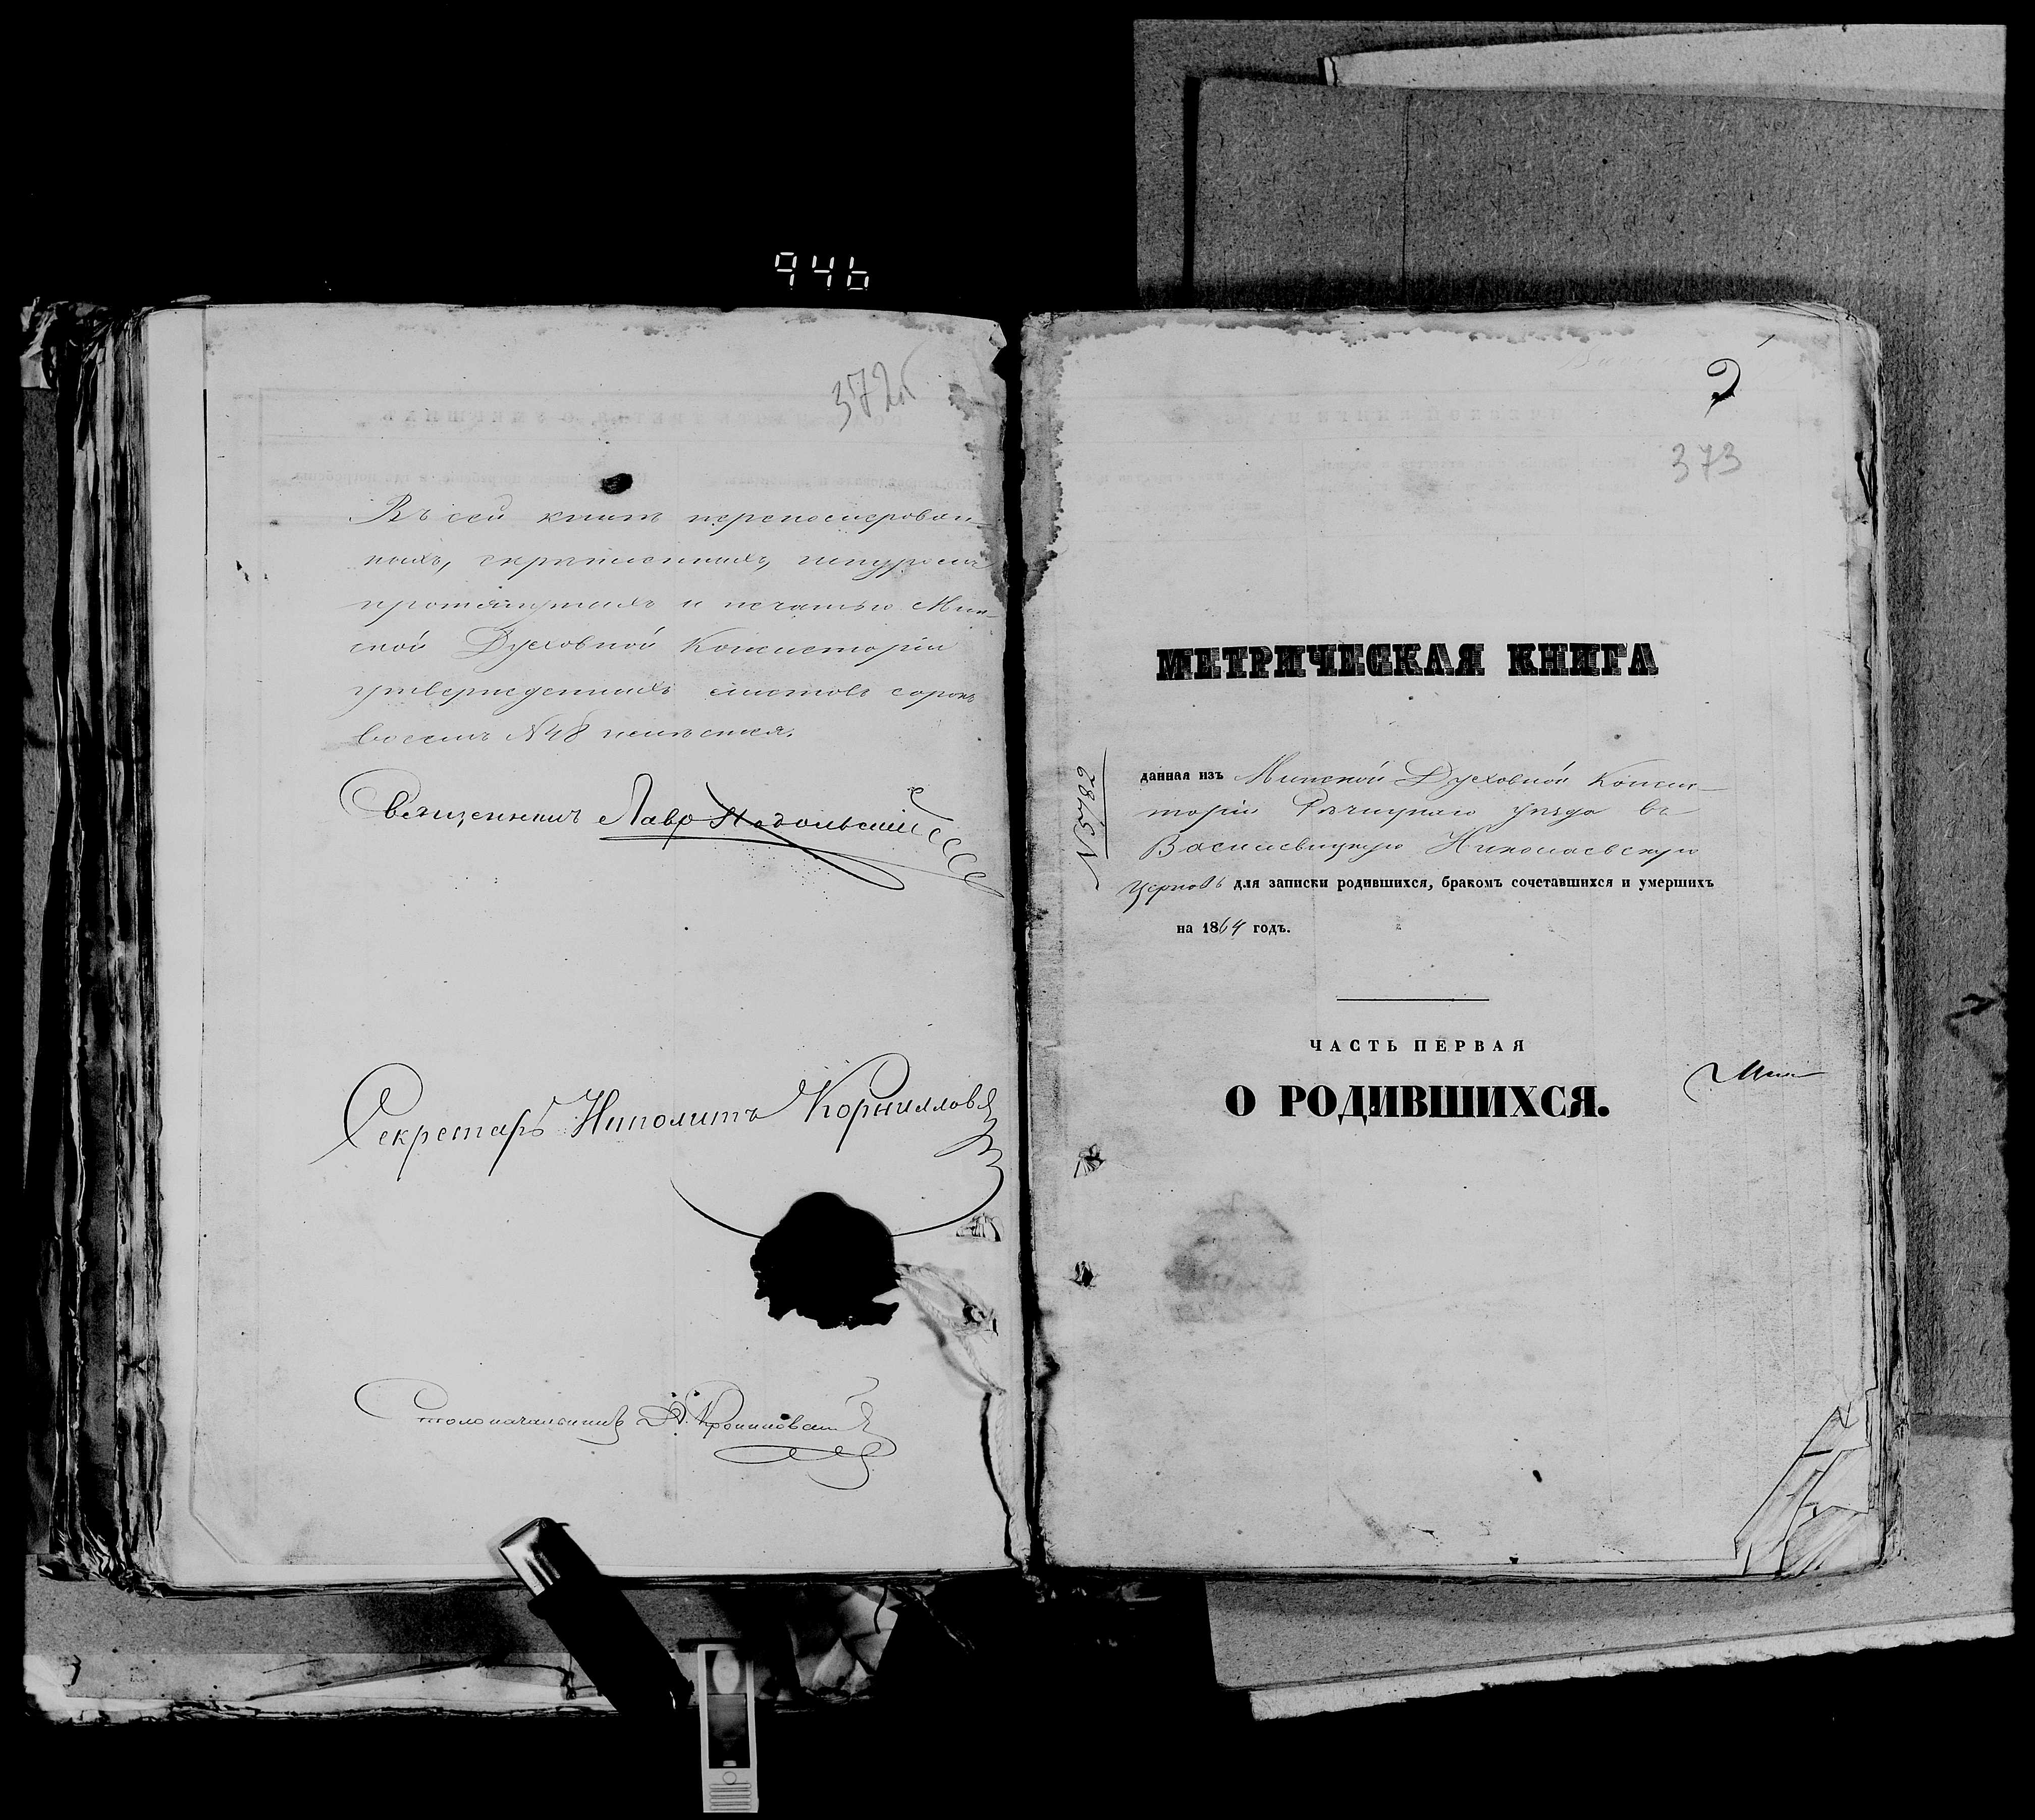 946
372б
Въ сей книгѣ перенумерован-
ныхъ, скрѣпленныхъ, шнуромъ
протянутыхъ и печатью Мин-
ской Духовной Консисторіи
утвержденныхъ листовъ сорокъ
восемь №48 имѣется.
Священникъ Лавр
Секретарь Иполитъ Корниловъ
Столоначальникъ
2
373
МЕТРИЧЕСКАЯ КНИГА
N 5782
данная изъ Минской Духовной Консис-
торіи Рѣчицкаго уѣзда въ
Василевицкую Николаевскую
Церковь для записки родившихся, бракомъ сочетавшихся и умершихъ
на 1864 годъ.
ЧАСТЬ ПЕРВАЯ
О РОДИВШИХСЯ.
Мин